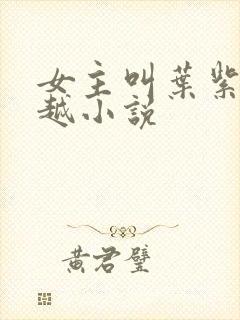 女主叫葉紫
越小說
黃君璧